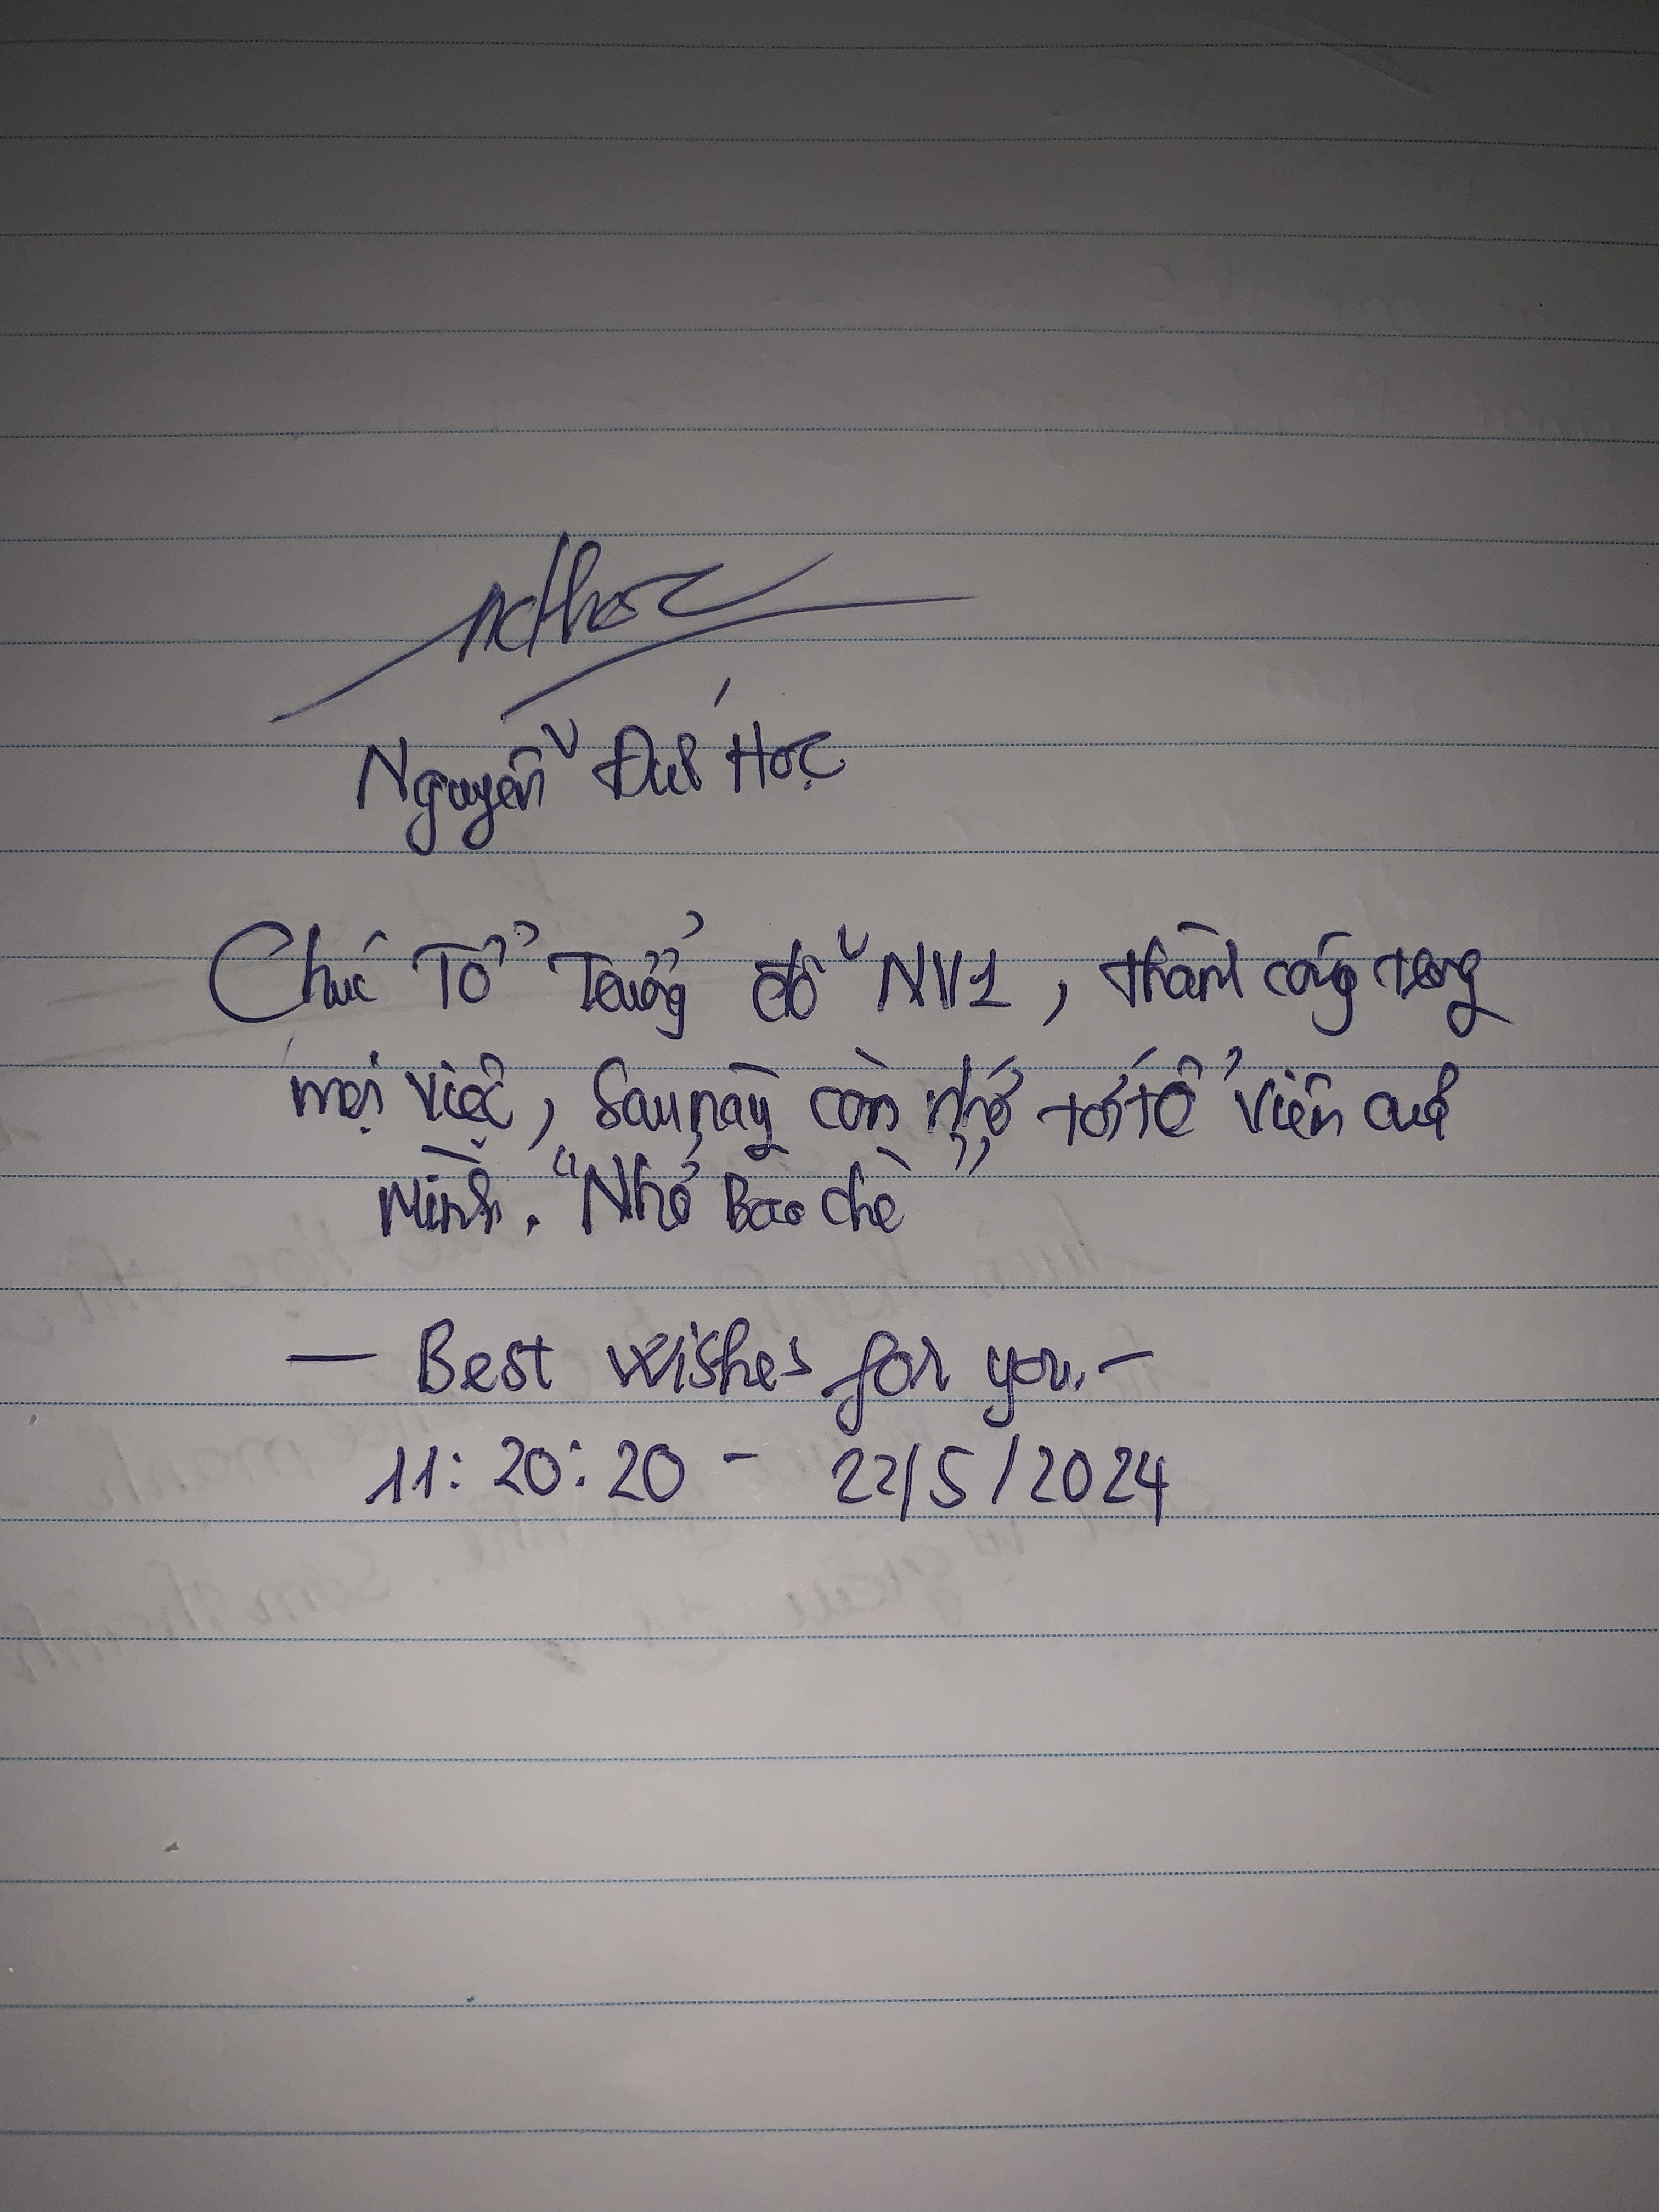 ndhoc
Nguyễn Đức Học
Chúc Tổ Trưởng đỗ NV1, thành công trong
mọi việc, Sau này còn nhớ tới tổ viên của
mình. "Nhớ Bao chè"
— Best wishes for you. —
11:20:20 - 22/5/2024